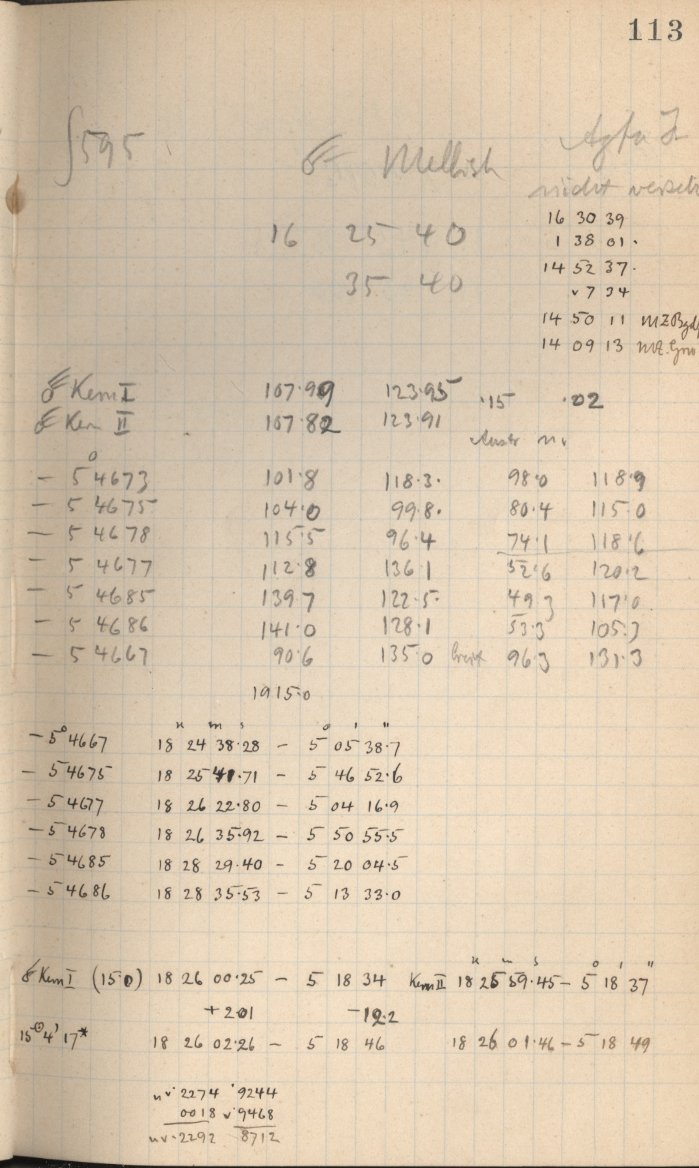 113
∫595 ☄ Mellish Agfa I
nicht
16 25 40
35 40
16 30 39
1 38 01.
14 52 37.
v 7 34
14 50 11 MZ Bgdf
14 09 13 MZ. Grw
☄ Kern I 107.99 123.95 .15 .02
☄ Kern II 107.82 123.91
- 5° 4673 101.8 118.3. 98.0 118.9
- 5 4675 104.0 99.8. 80.4 115.0
- 5 4678 115.5 96.4 74.1 118.6
- 5 4677 112.8 136.1 52.6 120.2
- 5 4685 139.7 122.5. 49.3 117.0
- 5 4686 141.0 128.1 53.3 105.7
- 5 4667 90.6 135.0 96.3 131.3
1915.0
h m s ° ' "
- 5° 4667 18 24 38.28 - 5 05 38.7
- 5 4675 18 25 41.71 - 5 46 52.6
- 5 4677 18 26 22.80 - 5 04 16.9
- 5 4678 18 26 35.92 - 5 50 55.5
- 5 4685 18 28 29.40 - 5 20 04.5
- 5 4686 18 28 35.53 - 5 13 33.0
h m s ° ' "
☄ Kern I (15.0) 18 26 00.25 - 5 18 34 Kern II 18 25 59.45 - 5 18 37
+2.01 -12.2
15° 4' 17* 18 26 02.26 - 5 18 46 18 26 01.46 - 5 18 49
nv.2274 .9244
0018 v.9468
nv.2292 8712